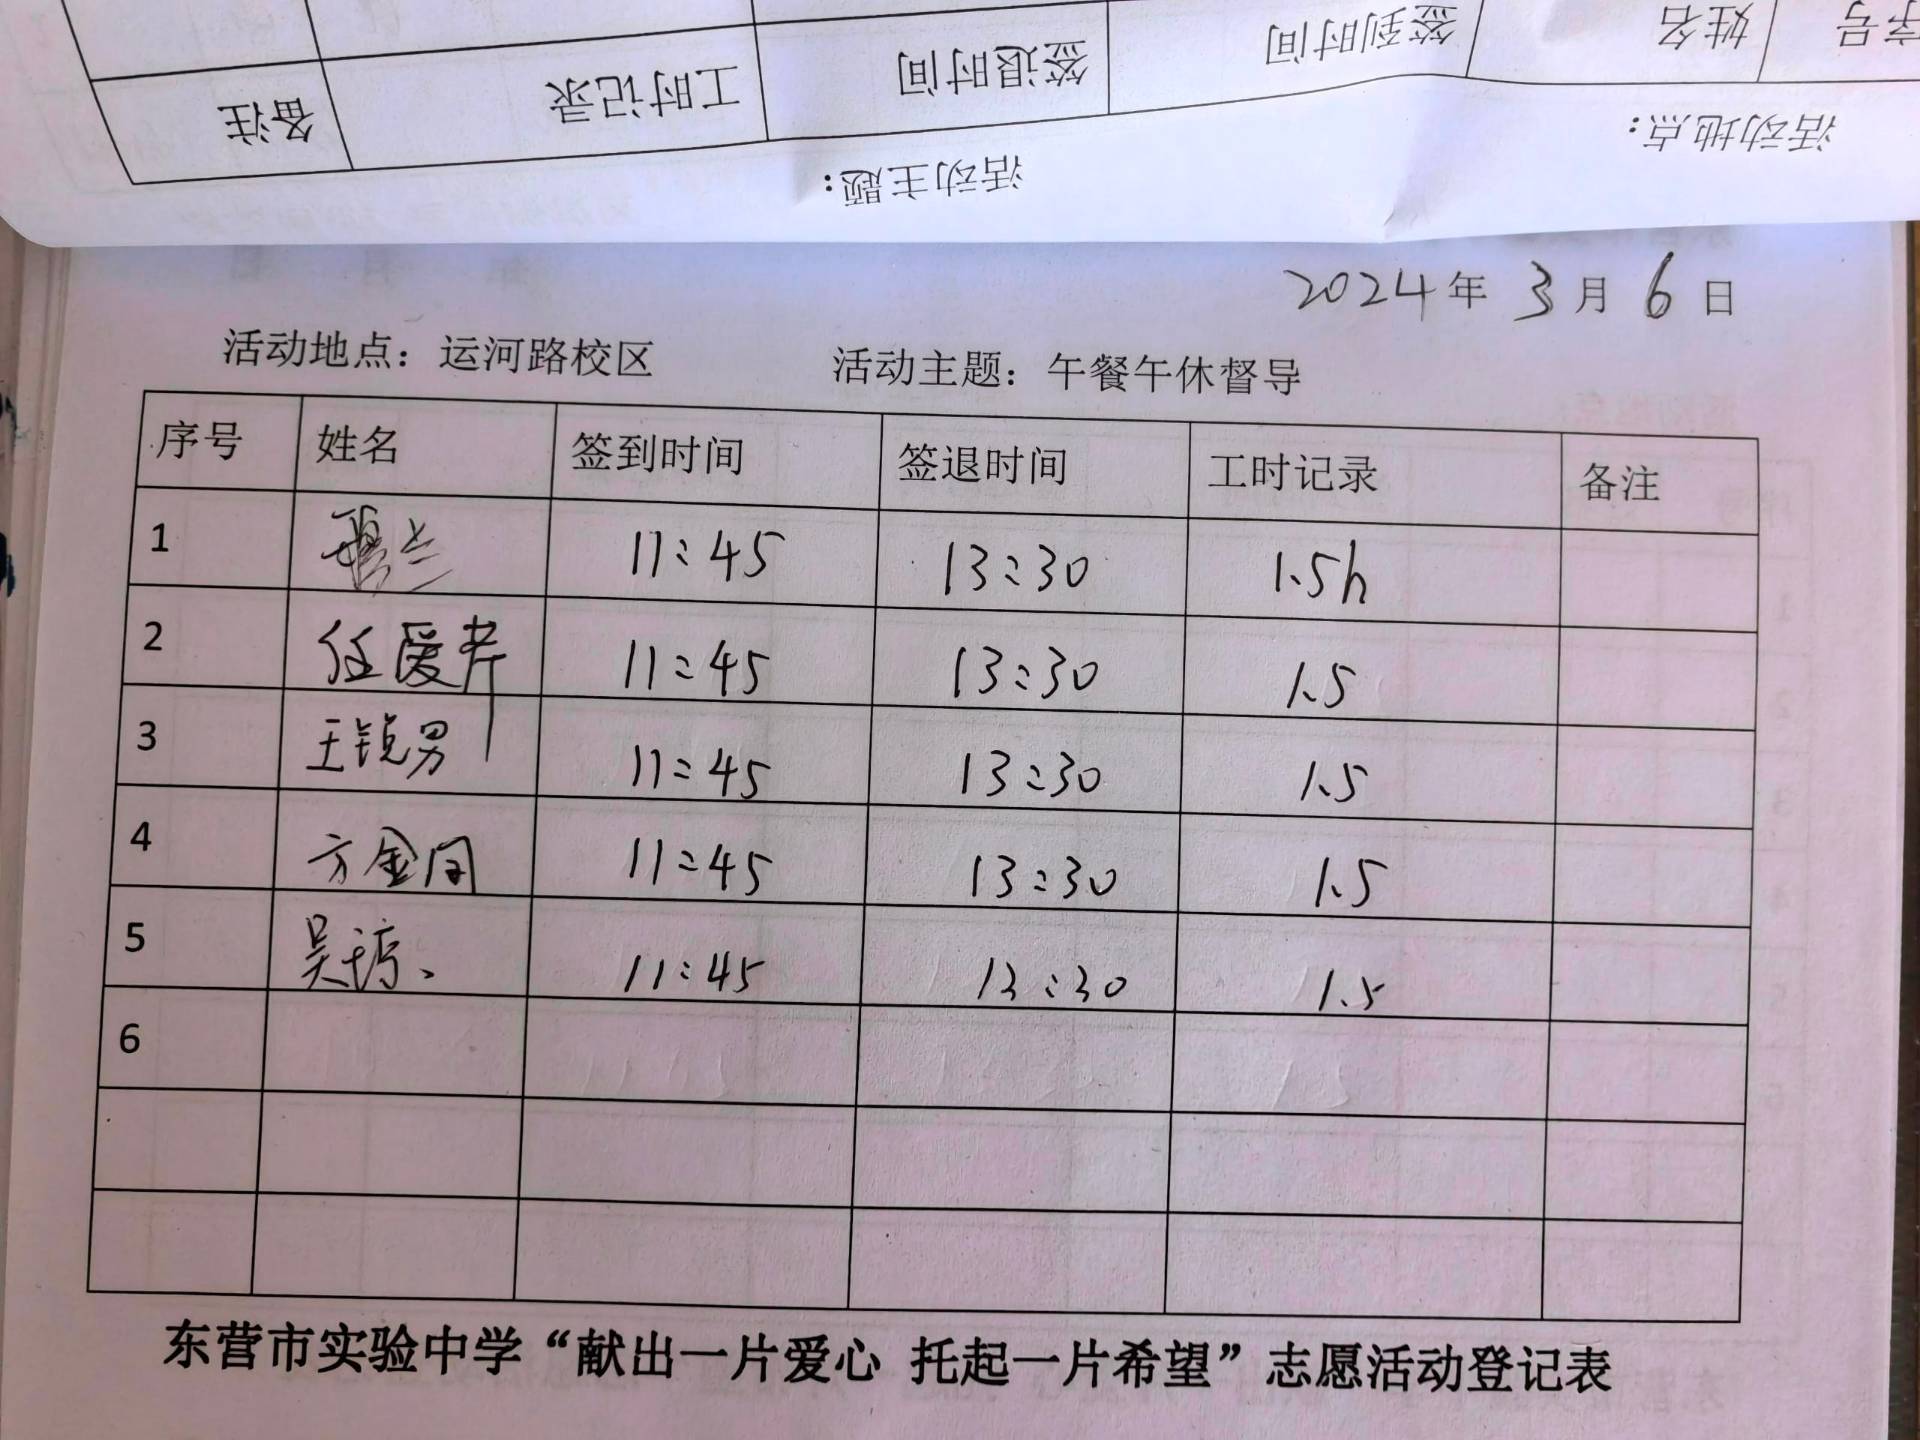 序号 姓名 签到时间 签退时间 工时记录 备注
活动地点： 活动主题：
2024年 3月 6日
活动地点：运河路校区 活动主题：午餐午休督导
序号 姓名 签到时间 签退时间 工时记录 备注
1 11:45 13:30 1.5h
2 任爱芹 11:45 13:30 1.5
3 王锐男 11:45 13:30 1.5
4 方金 11:45 13:30 1.5
5 吴琼 11:45 13:30 1.5
6
东营市实验中学“献出一片爱心 托起一片希望”志愿活动登记表